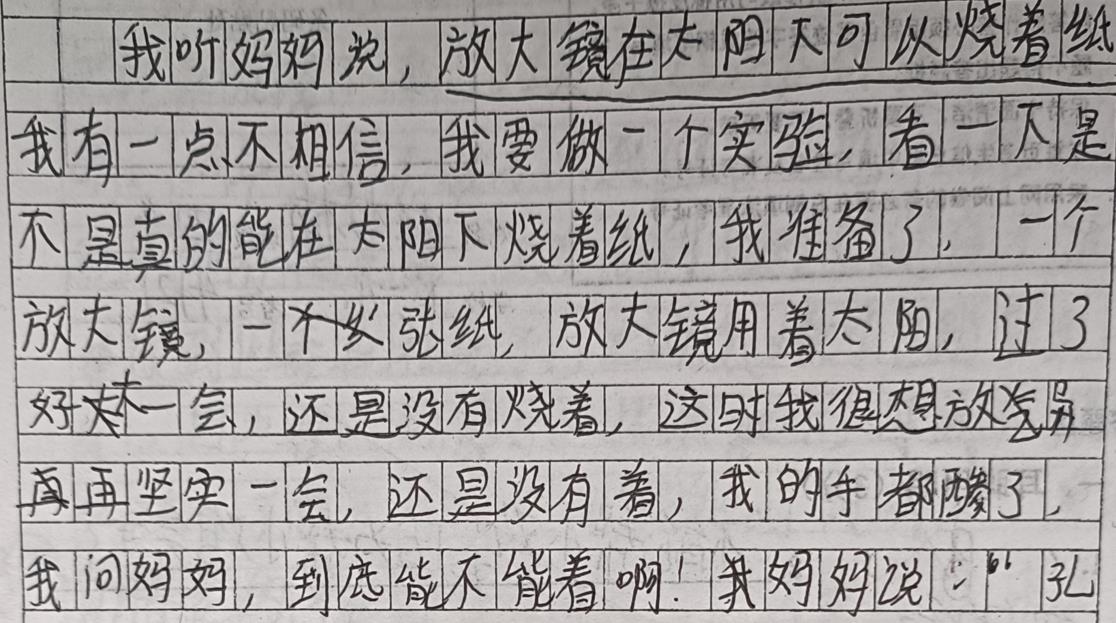 我听妈妈说，放大镜在太阳下可以烧着纸
我有一点不相信，我要做一个实验，看一下是
不是真的能在太阳下烧着纸，我准备了，一个
放大镜，一张纸，放大镜用着太阳，过了
好大一会，还是没有烧着，这时我很想放弃
再坚实一会，还是没有着，我的手都酸了，
我问妈妈，到底能不能着啊！我妈妈说：“孔